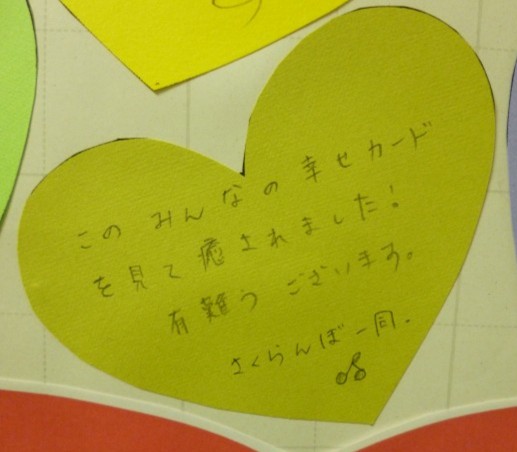 このみんなの幸せカード
を見て癒されました!
有難うございます。
さくらんぼ一同.